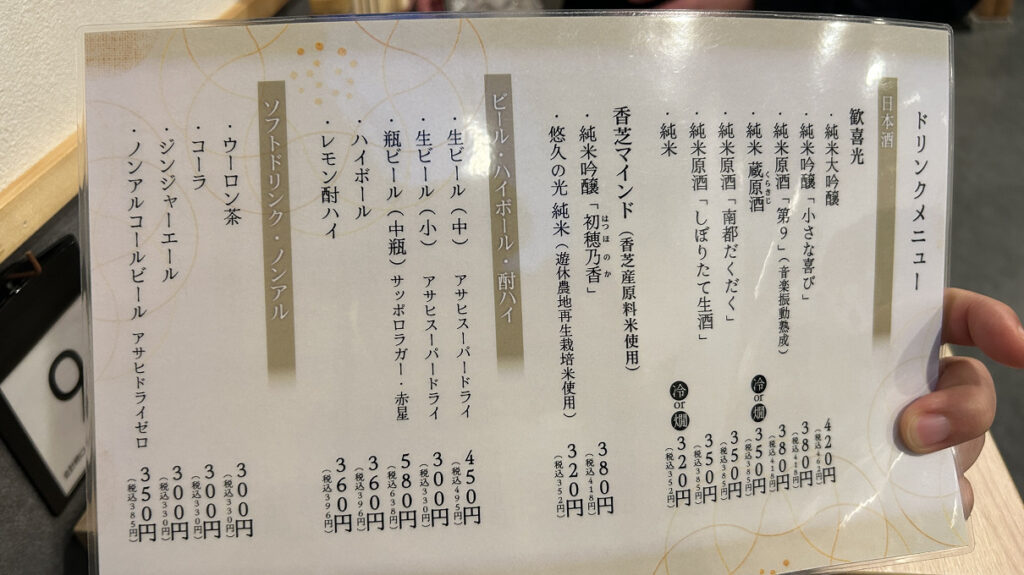 ドリンクメニュー
日本酒
歓喜光
・純米大吟醸 420円(税込462円)
・純米吟醸「小さな喜び」 380円(税込418円)
・純米原酒「第9」(音楽振動熟成) 380円(税込418円)
・純米 蔵原酒 くらきじ 冷or燗 350円(税込385円)
・純米原酒「南都だくだく」 350円(税込385円)
・純米原酒「しぼりたて生酒」 350円(税込385円)
・純米 冷or燗 320円(税込352円)
香芝マインド(香芝産原料米使用)
・純米吟醸「初穂乃香」 はつほのか 380円(税込418円)
・悠久の光 純米(遊休農地再生栽培米使用) 320円(税込352円)
ビール・ハイボール・酎ハイ
・生ビール(中) アサヒスーパードライ 450円(税込495円)
・生ビール(小) アサヒスーパードライ 300円(税込330円)
・瓶ビール(中瓶)サッポロラガー・赤星 580円(税込638円)
・ハイボール 360円(税込396円)
・レモン酎ハイ 360円(税込396円)
ソフトドリンク・ノンアル
・ウーロン茶 300円(税込330円)
・コーラ 300円(税込330円)
・ジンジャーエール 300円(税込330円)
・ノンアルコールビール アサヒドライゼロ 350円(税込385円)
9